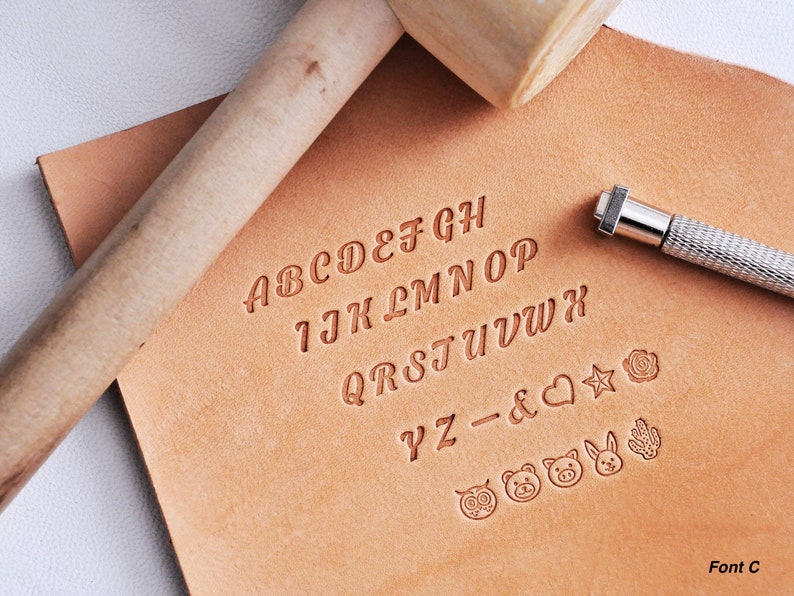 ABCDEFGH
IJKLMNOP
QRSTUVWX
YZ -&
Font C